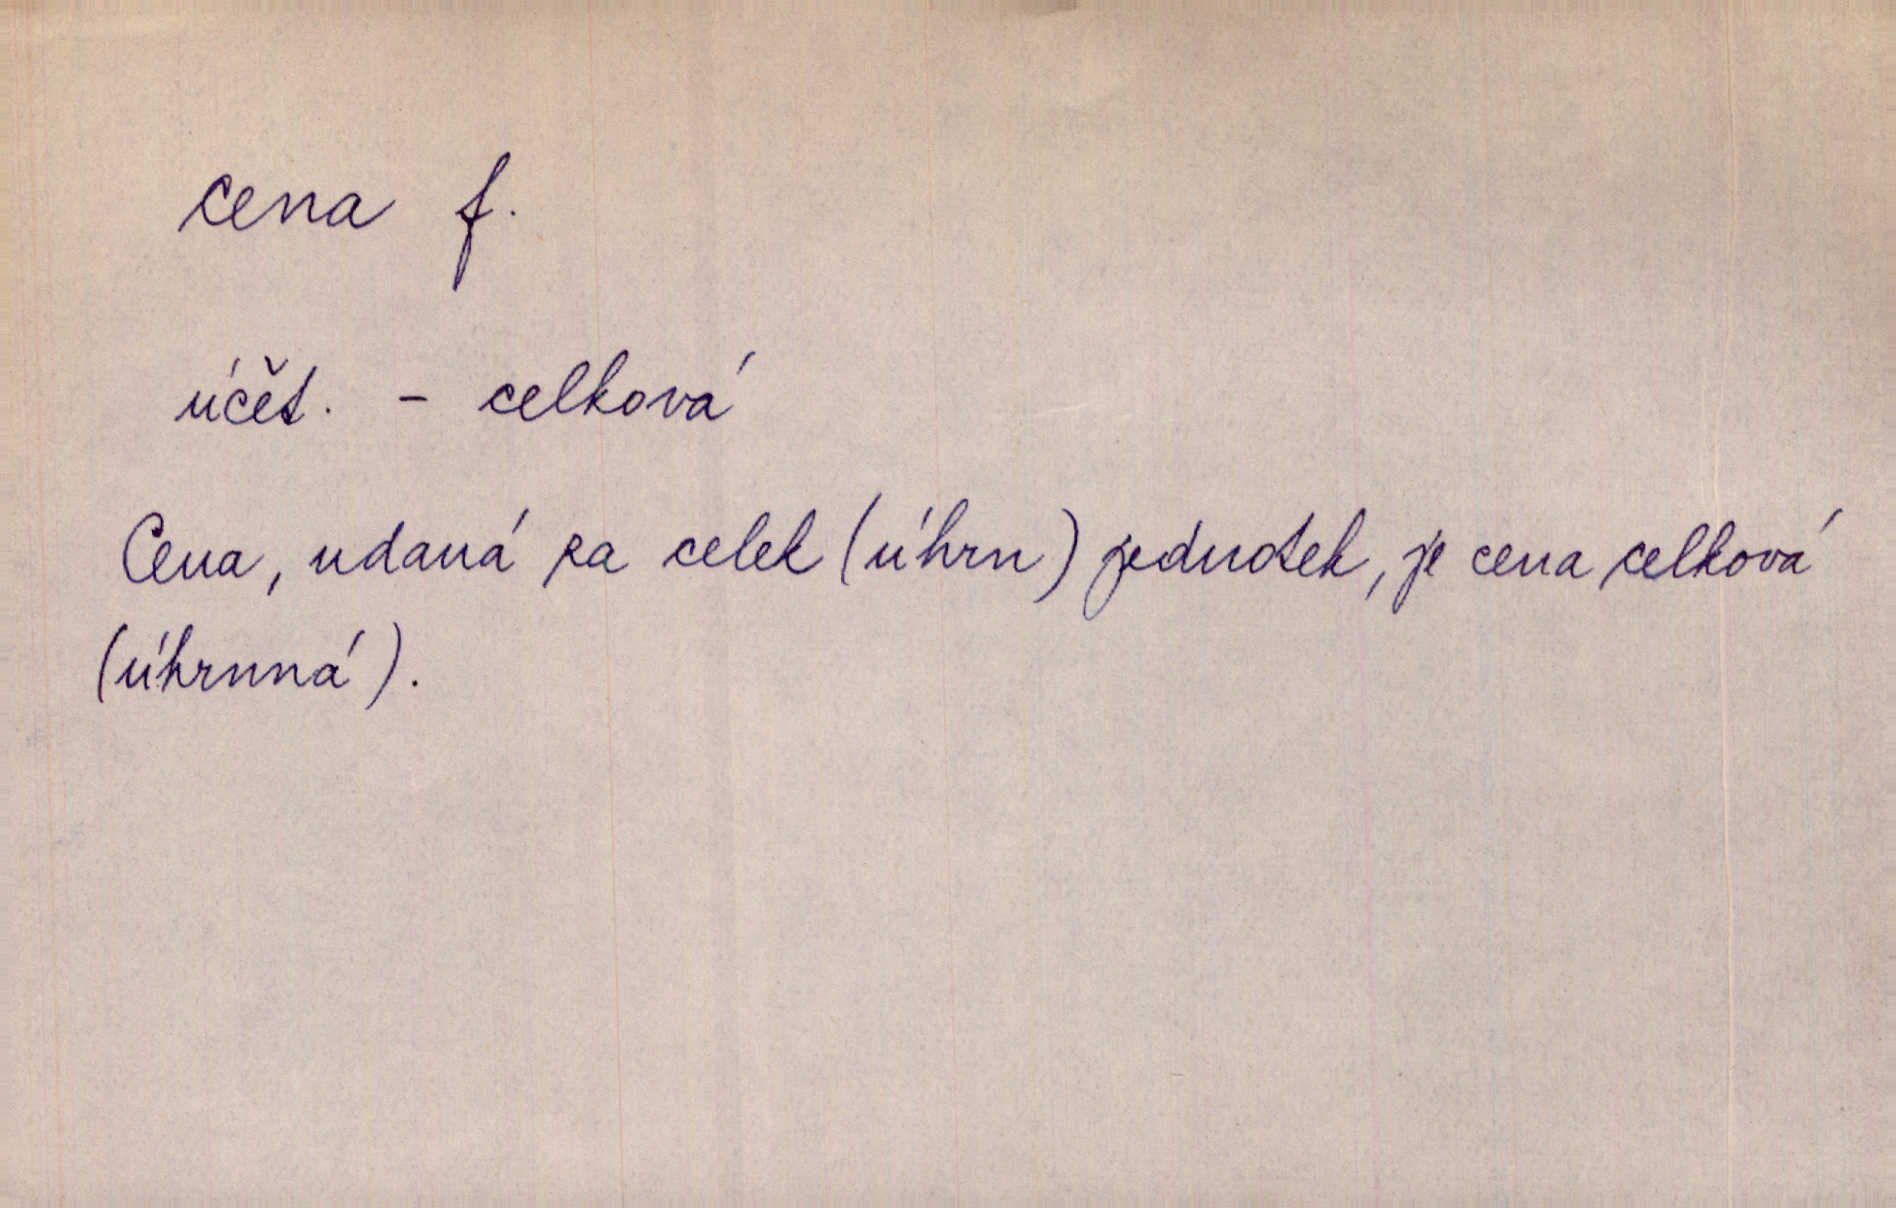 cena f.
účet. - celková
Cena, udaná za celek (úhrn) jednotek, je cena celková
(úhrnná).